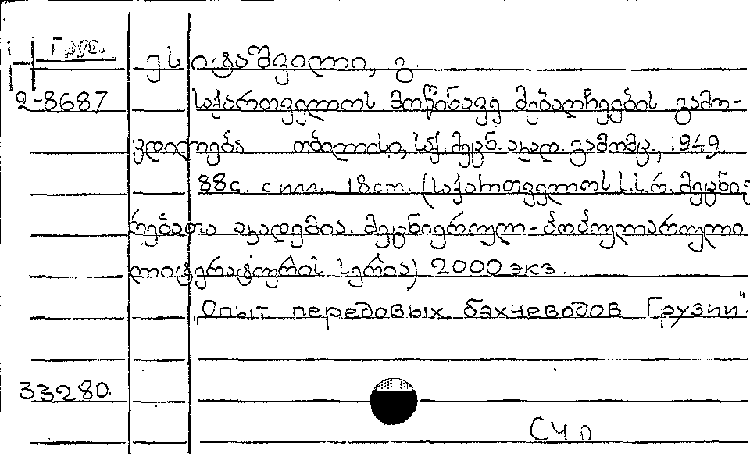 Груз.
ესიტაშვილი, გ.
2-8687 საქართველოს მოწინავე მებაღჩეების გამო-
ცდილება თბილისი, საქ. მეცნ. აკად. გამომც., 1949.
88с. с илл. 18cm. (საქართველოს ს.ს.რ. მეცნიე
რებათა აკადემია. მეცნიერულ-პოპულარული
ლიტერატურის სერია) 2000 экз.
Опыт передовых бахчеводов Грузии"
33280.